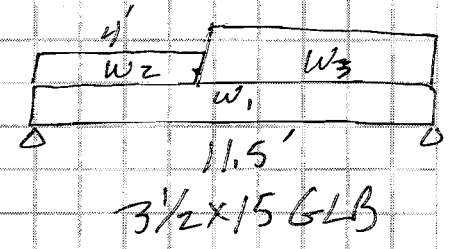 4'
W2 W3
W1
11.5'
3 1/2 x 15 GLB